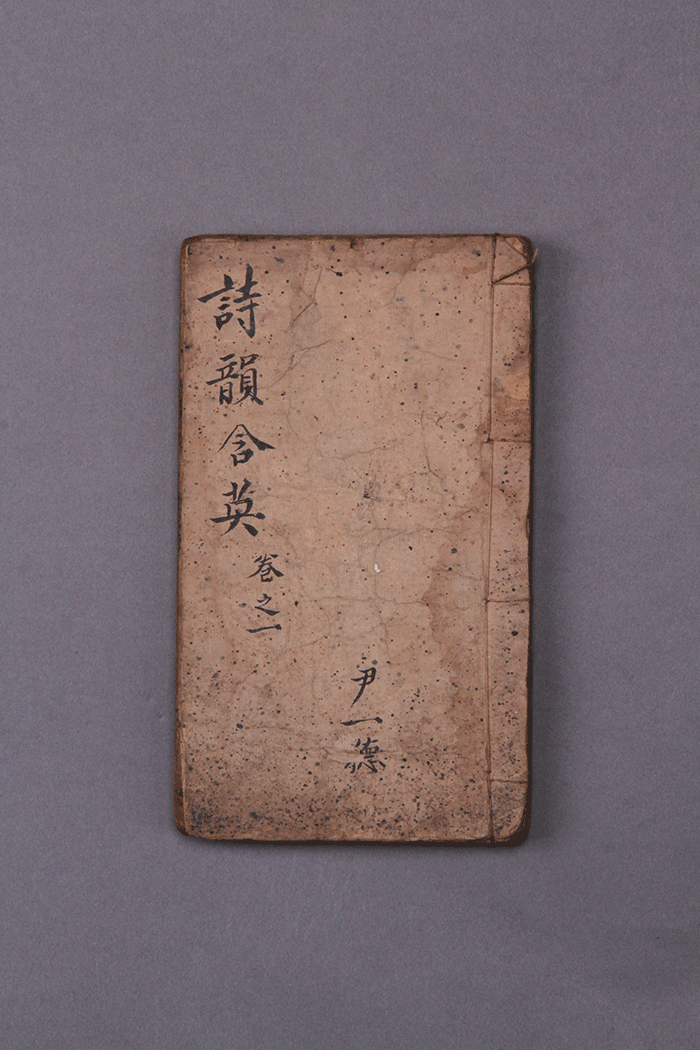 詩韻含英
卷之一
尹一德